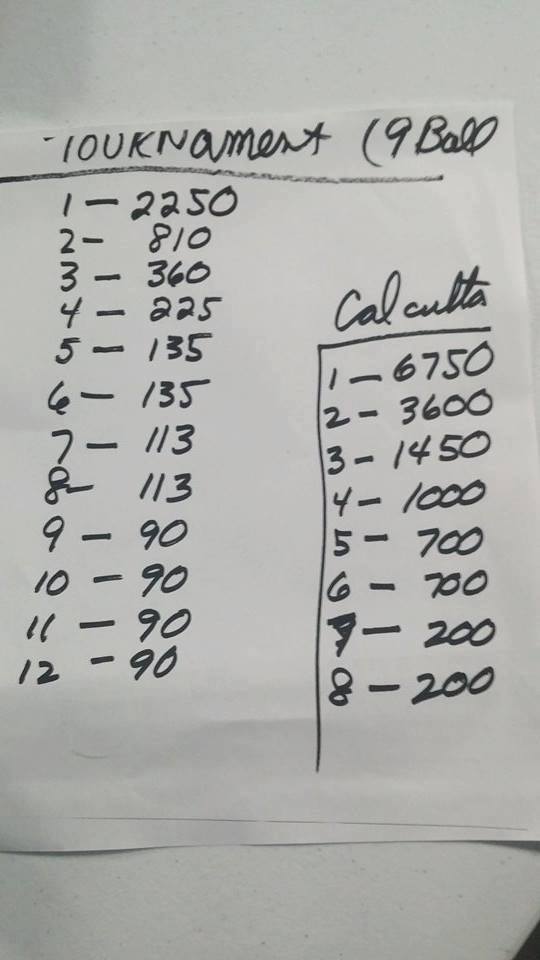 TOURNAMENT (9 Ball
1 - 2250
2 - 810
3 - 360
4 - 225
5 - 135
6 - 135
7 - 113
8 - 113
9 - 90
10 - 90
11 - 90
12 - 90
Calcutta
1 - 6750
2 - 3600
3 - 1450
4 - 1000
5 - 700
6 - 700
7 - 200
8 - 200